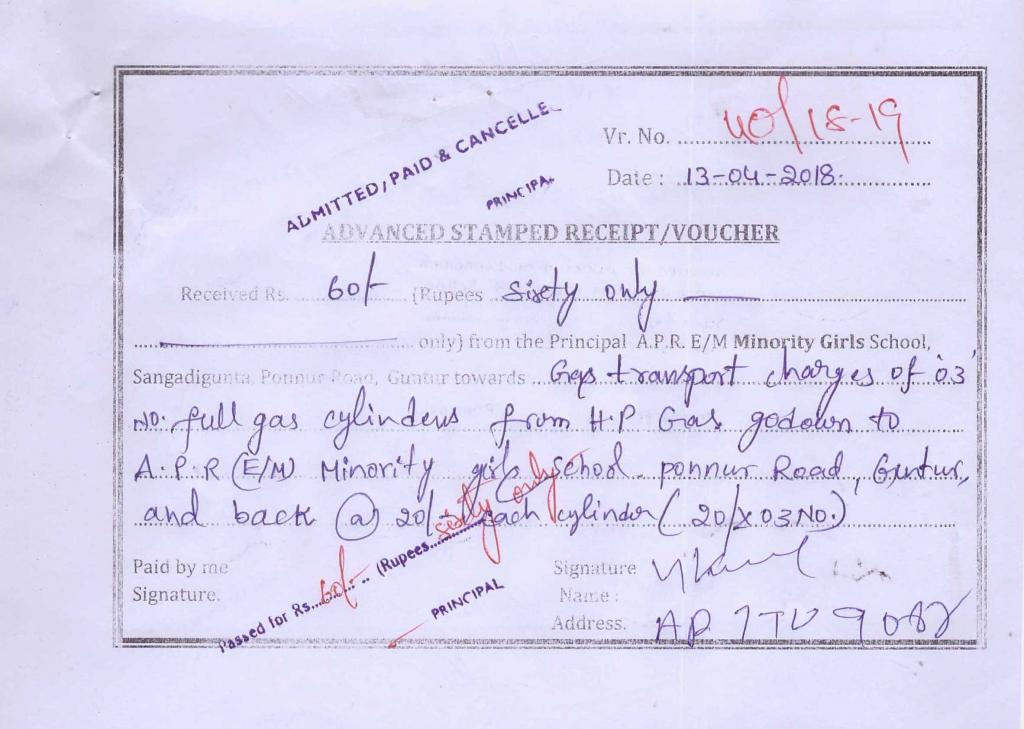 ADMITTED, PAID & CANCELLE
PRINCIPA
Vr. No. 40/18-19
Date : 13-04-2018.
ADVANCED STAMPED RECEIPT/VOUCHER
Received Rs. 60/- (Rupees Sixty only
only) from the Principal A.P.R. E/M Minority Girls School,
Sangadigunta, Ponnur Road, Guntur towards Gas transport charges of 03
No. full gas cylinders from H.P Gas godown to
A.P.R (E/M) Minority girls School. ponnur Road, Guntur,
and back @ 20/- each cylinder (20/x 03 No.)
Passed for Rs. 60/- (Rupees sixty only
PRINCIPAL
Paid by me
Signature.
Signature
Name :
Address. AP 7 TU 9082